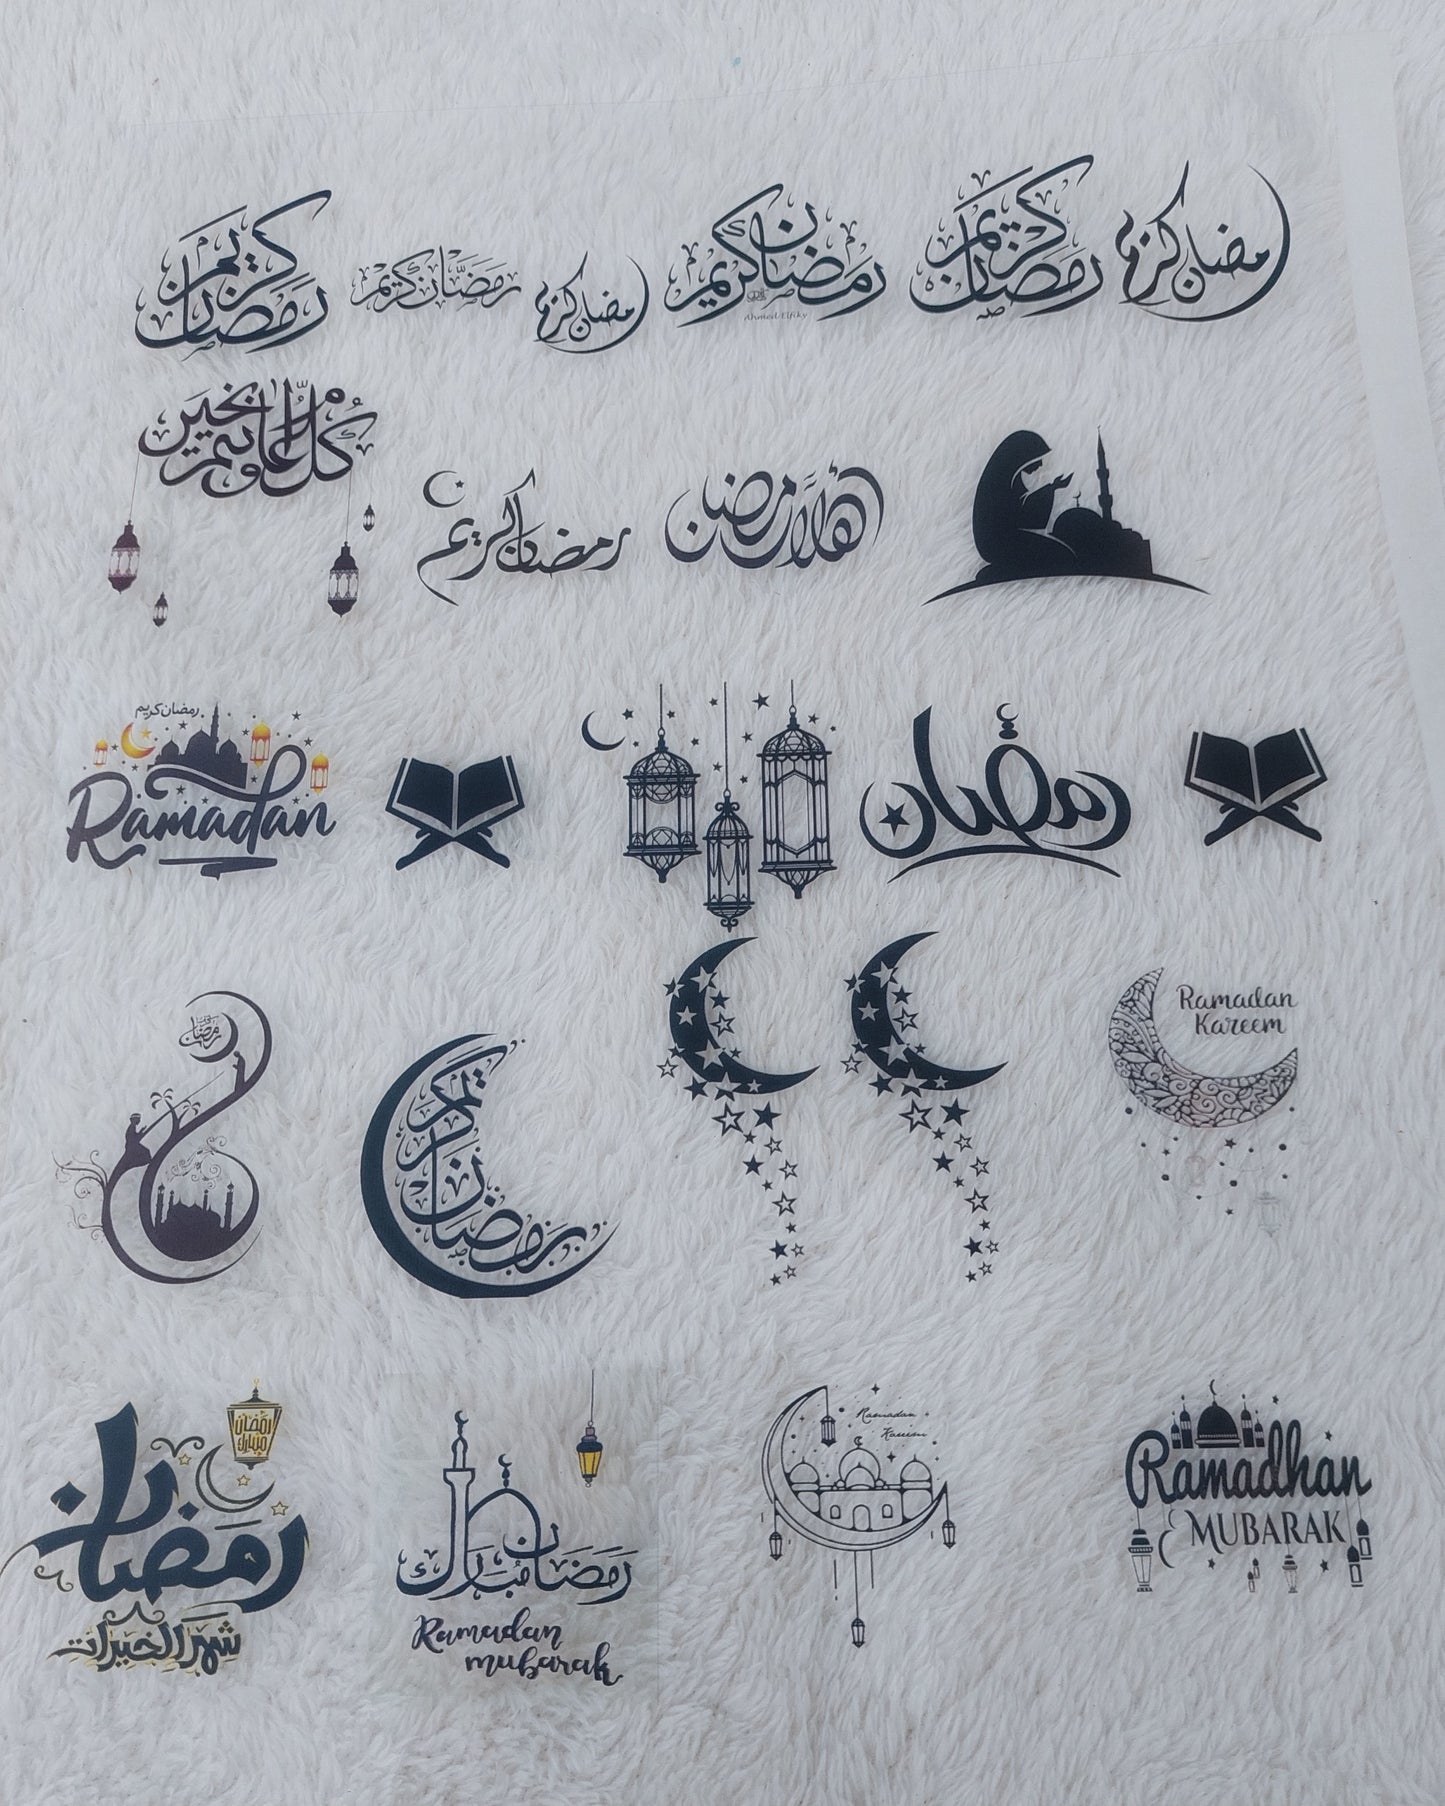 رمضان كريم
رَمَضَان كَريم
رمضان كريم
رمضان كريم
Ahmed Elfiky
رمضان كريم
رمضان كريم
كل عام وأنتم بخير
رمضان كريم
أهلاً رمضان
رمضان كريم
Ramadan
رمضان
رمضان
رمضان كريم
Ramadan
Kareem
رمضان
مبارك
رمضان
شهر الخيرات
رمضان مبارك
Ramadan
mubarak
Ramadan
Kareem
Ramadhan
MUBARAK